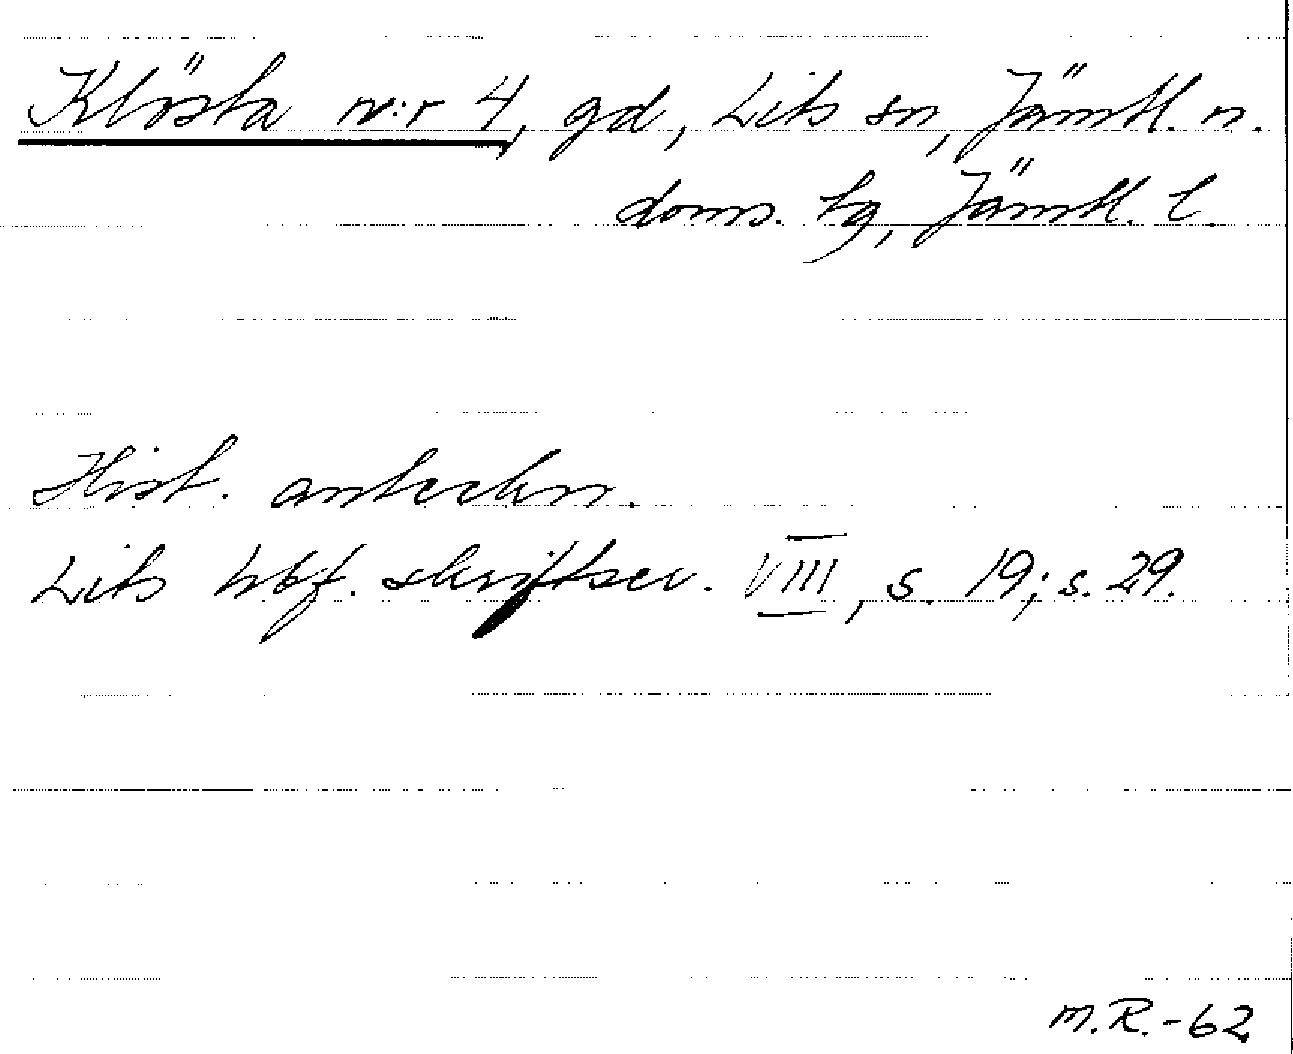 Klösta n:r 4, gd, Lits sn, Jämtl. n.
doms. tg, Jämtl. l.
Hist. anteckn.
Lits hbf. skriftser. VIII, s. 19; s. 29.
M.R.-62